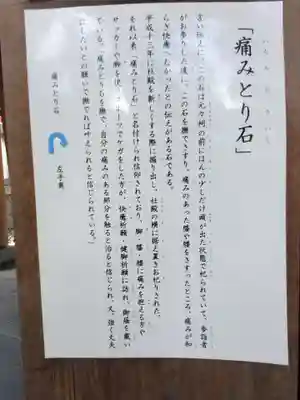 「痛みとり石」
言い伝えに、この石は元々祠の前にほんの少しだけ頭が出た状態で祀られていて、参詣者
がお参りした後に、この石を撫でさすり、痛みのあった腰や膝をさすったところ、痛みが和
らぎ快癒へむかったとの伝えがある石である。
平成十三年に社殿を新しくする際に掘り出し、社殿の横に据え置きお祀りされた。
それ以来「痛みとり石」と名付けられ信仰されており、脚・膝・腰に痛みを抱える方や
サッカーや脚を使うスポーツでケガをした方が、快癒祈願・健脚祈願に訪れ、御蔭を戴い
ている。「痛みとり石を撫で、自分の痛みのある部分を触ると治ると信じられ、又、強く丈夫
にしたいとの願いで撫でれば叶えられると信じられている。」
痛みとり石
左手奥